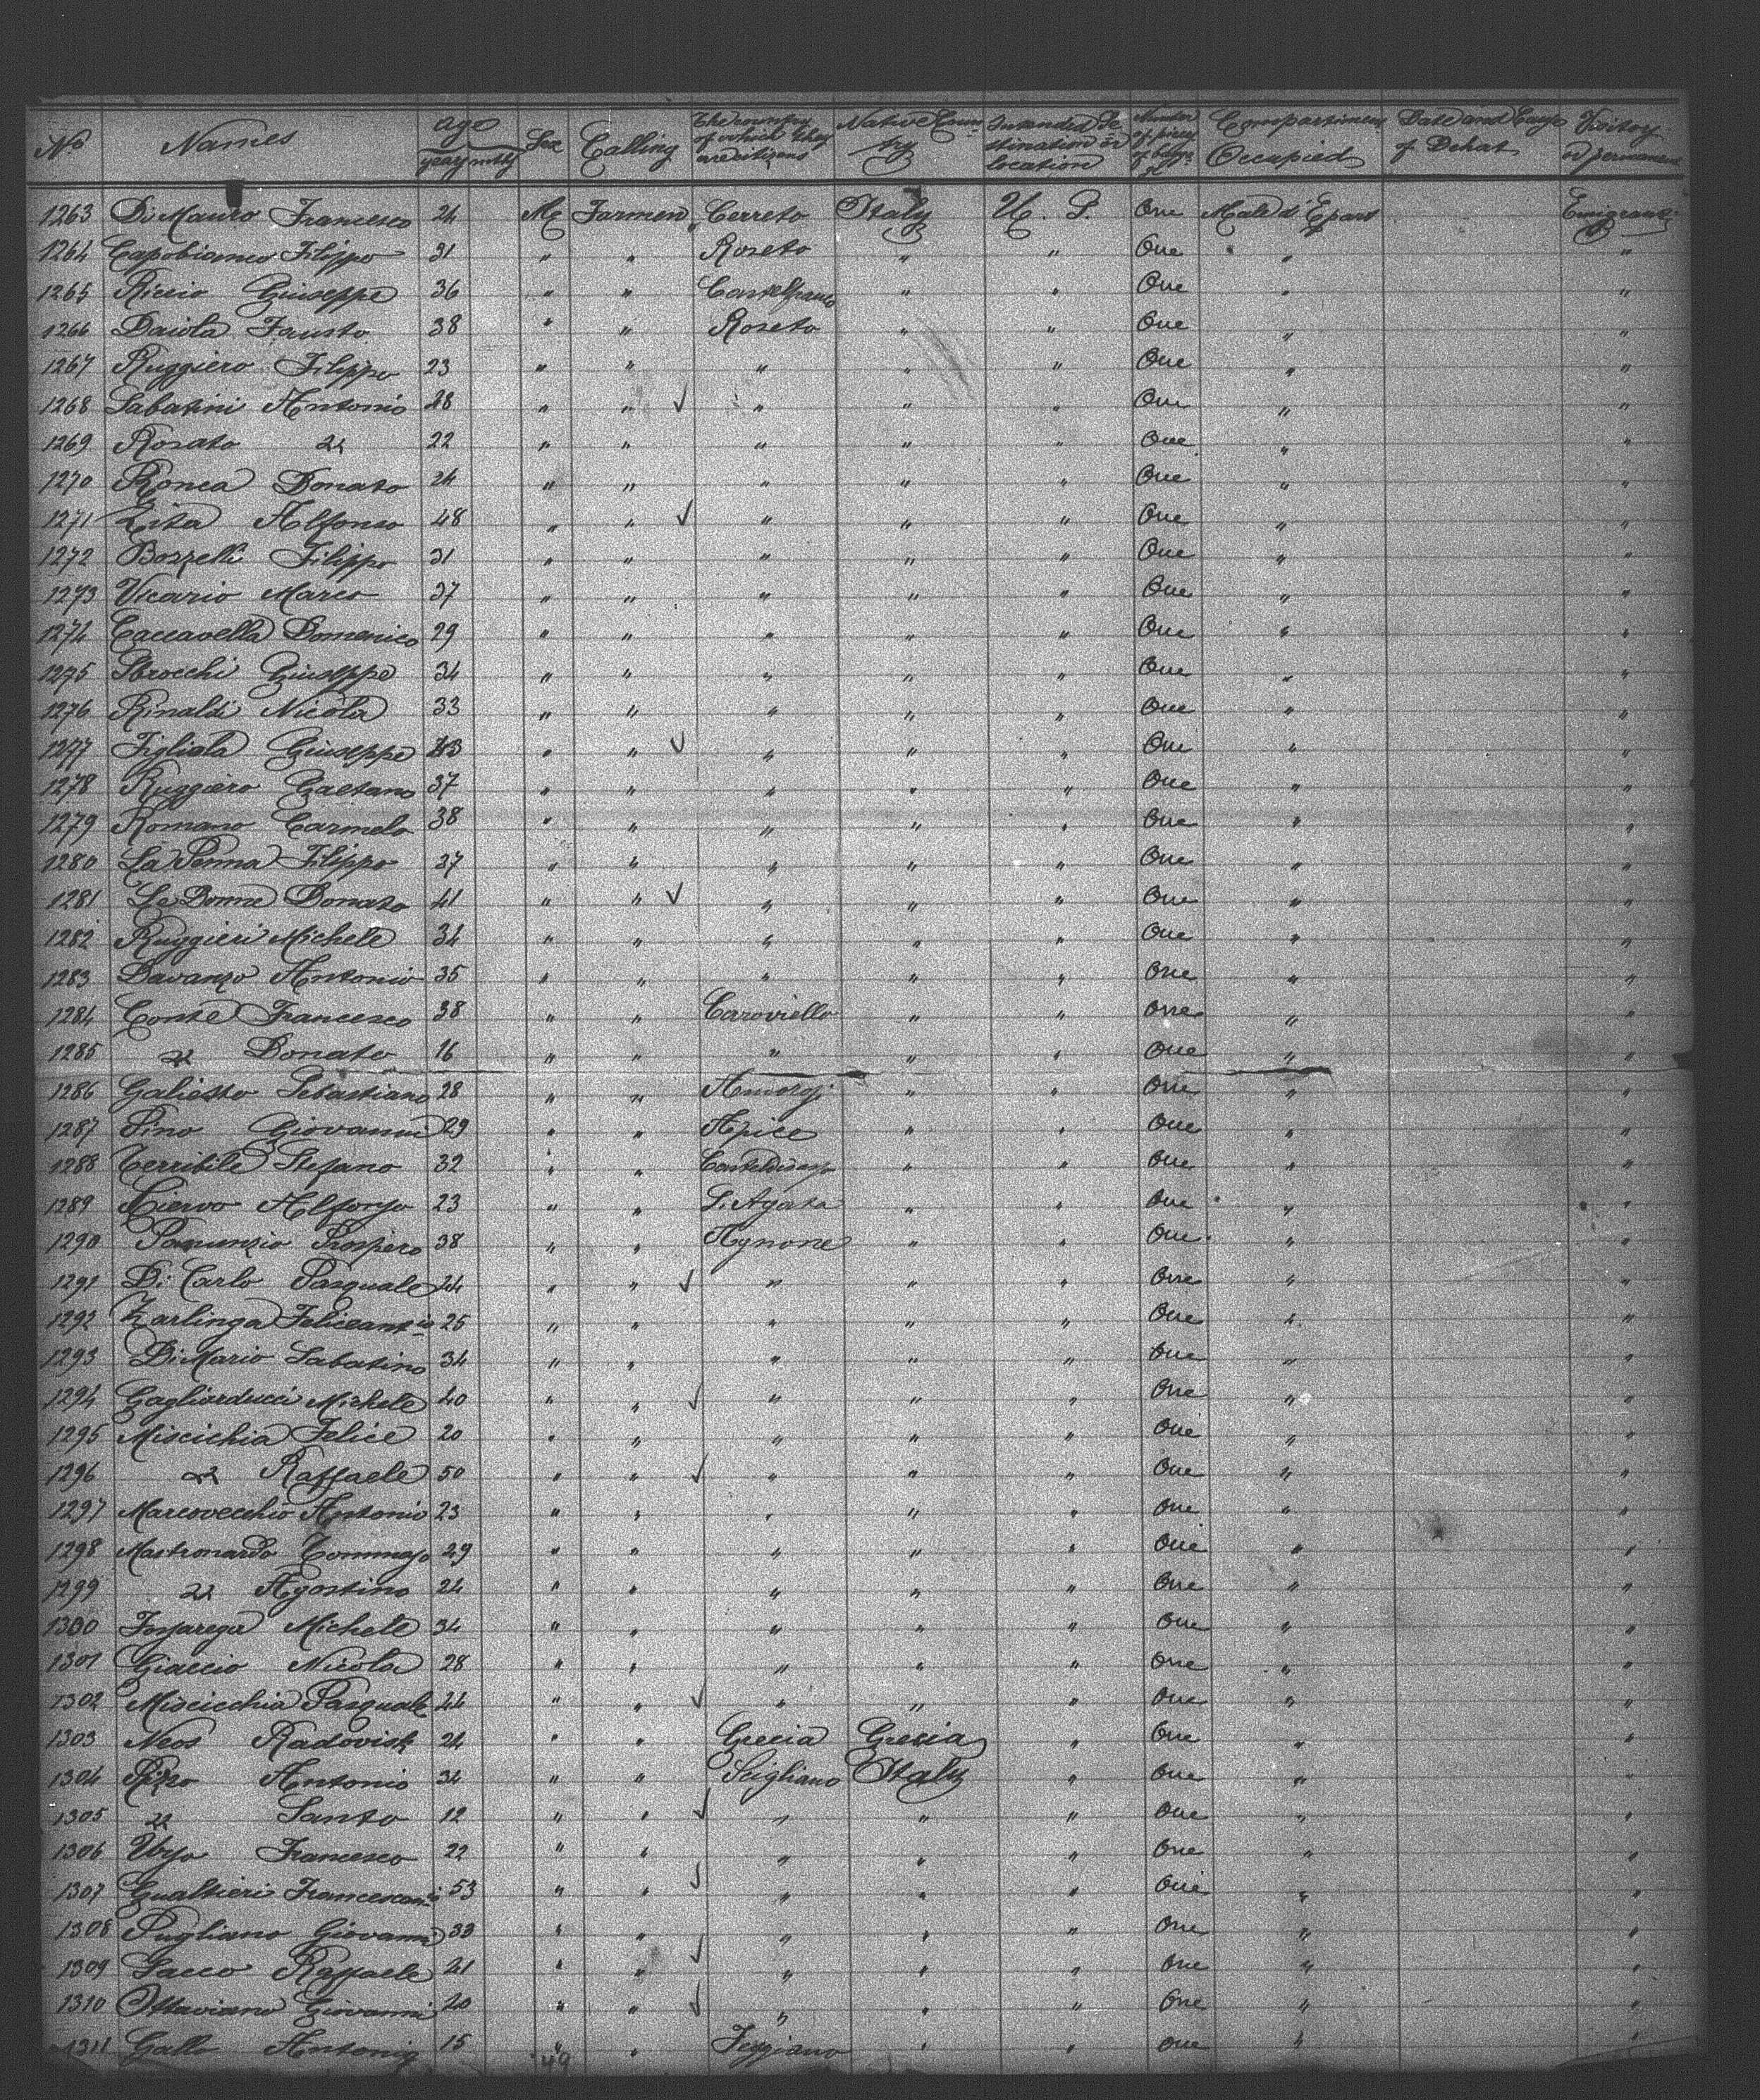 No Names Age Sex Calling The country of which they are citizens Native Country Intended Destination or location Number of pieces of bagg. Compartiment Occupied Date and Cause of Dehat Visitor or permanent
years mths
1263 Di Mauro Francesco 24 Me Farmen Cerreto Italy U. S. One Male d'Epart Emigrant
1264 Capobianco Filippo 31 " " Roseto " " One " "
1265 Riccio Giuseppe 36 " " Castelfranco " " One " "
1266 Daiola Fausto 38 " " Roseto " " One " "
1267 Ruggiero Filippo 23 " " " " " One " "
1268 Sabatini Antonio 28 " " ✓ " " " One " "
1269 Rosato " 22 " " " " " One " "
1270 Ronca Donato 24 " " " " " One " "
1271 Zita Alfonso 48 " " ✓ " " " One " "
1272 Bozzelli Filippo 31 " " " " " One " "
1273 Vicario Marco 37 " " " " " One " "
1274 Caccavella Domenico 29 " " " " " One " "
1275 Sbrocchi Giuseppe 34 " " " " " One " "
1276 Rinaldi Nicola 33 " " " " " One " "
1277 Figliola Giuseppe 43 " " ✓ " " " One " "
1278 Ruggiero Gaetano 37 " " " " " One " "
1279 Romano Carmelo 38 " " " " " One " "
1280 La Penna Filippo 37 " " " " " One " "
1281 Le Donne Donato 41 " " ✓ " " " One " "
1282 Ruggieri Michele 34 " " " " " One " "
1283 Davanzo Antonio 35 " " " " " One " "
1284 Conte Francesco 38 " " Caroviello " " One " "
1285 " Donato 16 " " " " " One " "
1286 Galiesto Sebastiano 28 " " Amorosi " " One " "
1287 Pino Giovanni 29 " " Apice " " One " "
1288 Terribile Stefano 32 " " " " One " "
1289 Ciervo Alfonso 23 " " S. Agata " " One " "
1290 Panunzio Prospero 38 " " Agnone " " One " "
1291 Di Carlo Pasquale 44 " " ✓ " " " One " "
1292 Zarlinga Feliceantio 25 " " " " " One " "
1293 Di Mario Sabatino 34 " " " " " One " "
1294 Gagliarducci Michele 40 " " ✓ " " " One " "
1295 Miscichia Felice 20 " " " " " One " "
1296 " Raffaele 50 " " ✓ " " " One " "
1297 Marcovecchio Antonio 23 " " " " " One " "
1298 Mastronardo Tommaso 29 " " " " " One " "
1299 " Agostino 24 " " " " " One " "
1300 Michele 34 " " " " " One " "
1301 Giaccio Nicola 28 " " " " " One " "
1302 Miscicchia Pasquale 44 " " ✓ " " " One " "
1303 Neos Radovisk 24 " " Grecia Grecia " One " "
1304 Pizzo Antonio 34 " " Scigliano Italy " One " "
1305 " Santo 12 " " ✓ " " " One " "
1306 Urso Francesco 22 " " " " " One " "
1307 Gualtieri Francescanto 53 " " ✓ " " " One " "
1308 Pugliano Giovanni 33 " " " " " One " "
1309 Sacco Raffaele 41 " " ✓ " " " One " "
1310 Ottaviano Giovanni 20 " " ✓ " " " One " "
1311 Gallo Antonio 15 " " Feggiano " " One " "
49